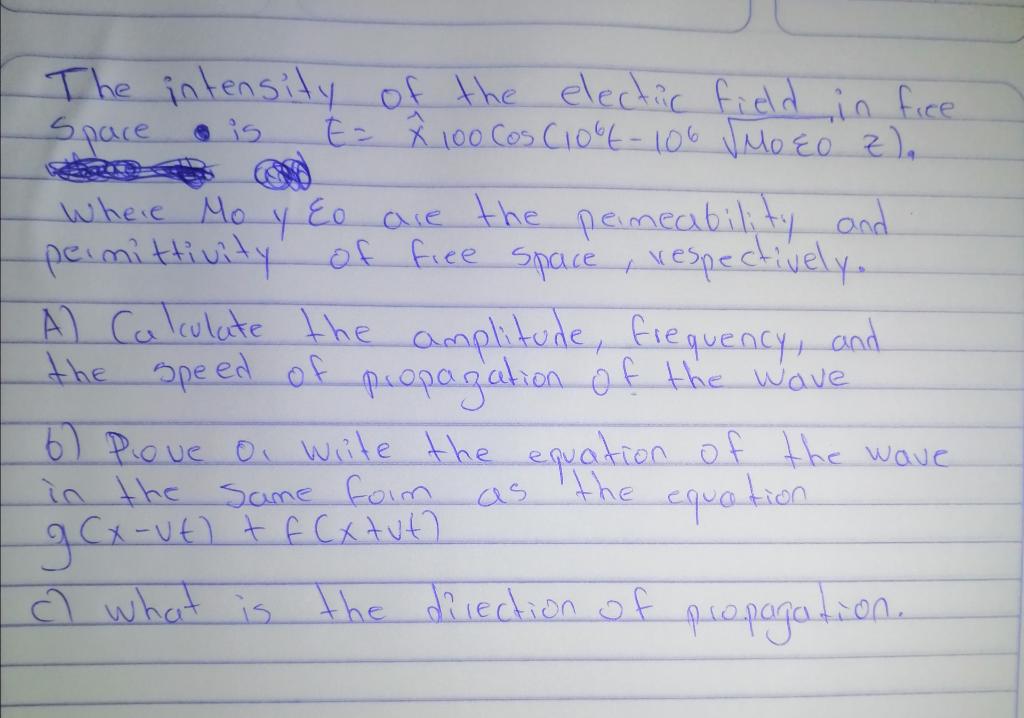 The intensity of the electric field in free
space is E = x̂ 100 Cos (10⁶t - 10⁶ √Mo εo z).
Where Mo y εo are the permeability and
permittivity of free space, respectively.
A) Calculate the amplitude, frequency, and
the speed of propagation of the wave
b) Prove or write the equation of the wave
in the same form as the equation
g(x-vt) + f(x+vt)
c) what is the direction of propagation.